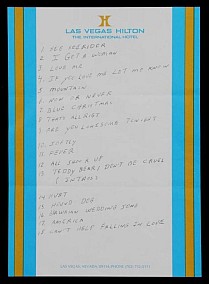 LAS VEGAS HILTON
THE INTERNATIONAL HOTEL
1 SEE SEERIDER
2 I GOT A WOMAN
3 LOVE ME
4 IF YOU LOVE ME LET ME KNOW
5 MOUNTAIN
6 NOW OR NEVER
7 BLUE CHRISTMAS
8 THATS ALLRIGHT
9 ARE YOU LONESOME TONIGHT
10
11 FEVER
12 ALL SHOOK UP
13 TEDDY BEAR, DON'T BE CRUEL
INTROS
14 HURT
15 HOUND DOG
16 HAWAIIAN WEDDING SONG
17 AMERICA
18 CAN'T HELP FALLING IN LOVE